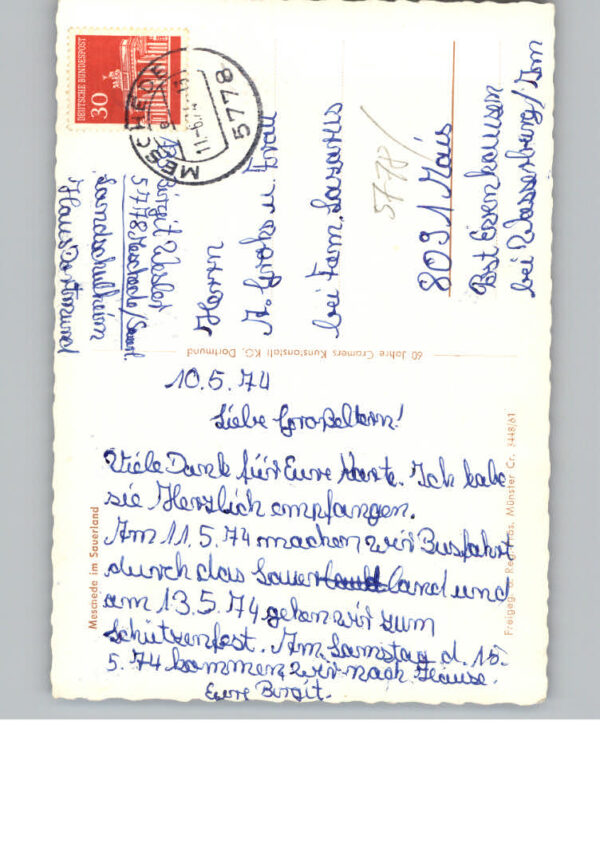 10.5.74
Liebe Großeltern!
Viele Dank für Eure Karte. Ich habe
sie Herzlich empfangen.
Am 11.5.74 machen wir Busfahrt
durch das Sauerland und
am 13.5.74 gehen wir zum
Schützenfest. Am Samstag d. 15.
5.74 kommen wir nach Hause.
Eure Birgit.
Meschede im Sauerland
Freigeg. d. Reg. Präs. Münster Cr. 3448/61
60 Jahre Cramers Kunstanstalt KG, Dortmund
DEUTSCHE BUNDESPOST
30
MESCHEDE
5778
Birgit
5778 Meschede/Sauerl.
Landschulheim
Haus Dortmund
Herrn
u. Frau
bei Fam. Lazarus
5778/
8091 Mais
Post
bei Wasserburg/Inn